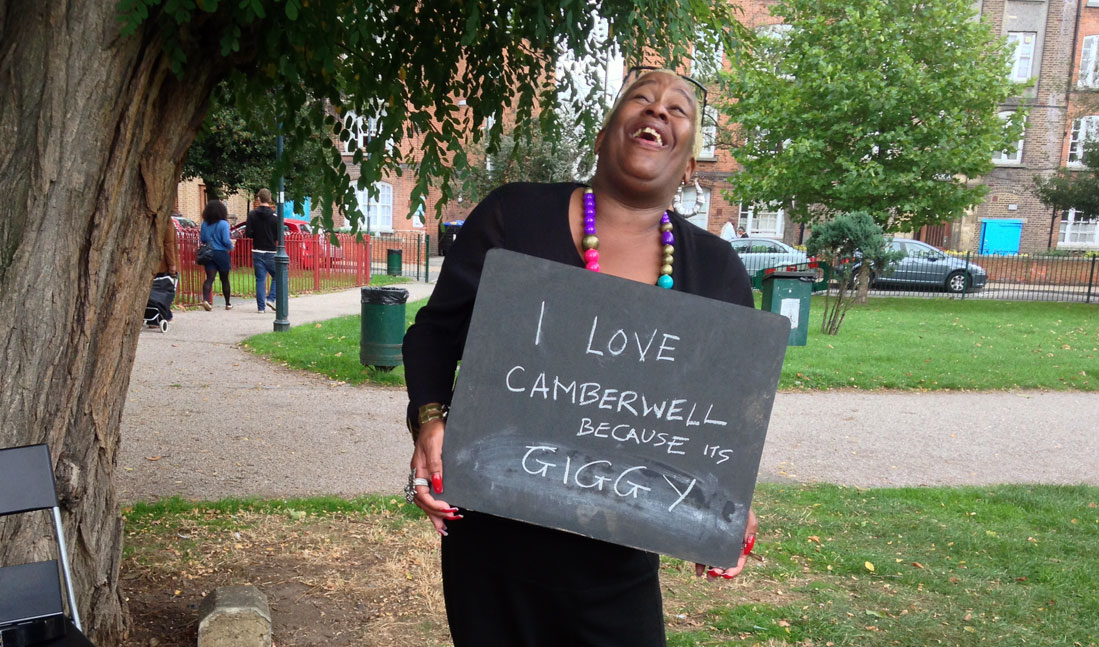 I LOVE
CAMBERWELL
BECAUSE ITS
GIGGY